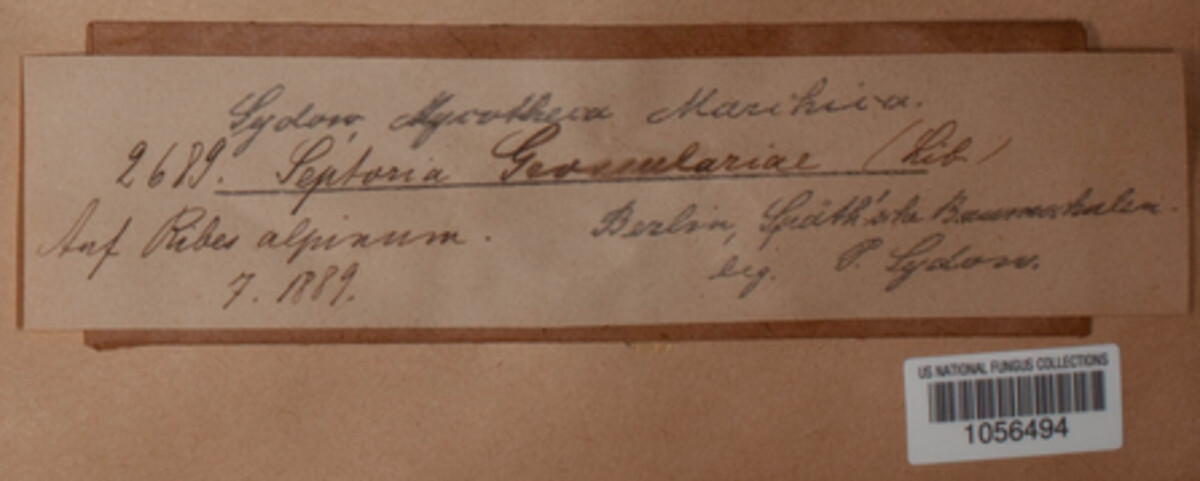 Sydow, Mycotheca Marchica.
2689. Septoria Grossulariae (Lib.)
Auf Ribes alpinum.
7. 1889.
Berlin, Späth'sche Baumschulen.
leg. P. Sydow.
US NATIONAL FUNGUS COLLECTIONS
1056494